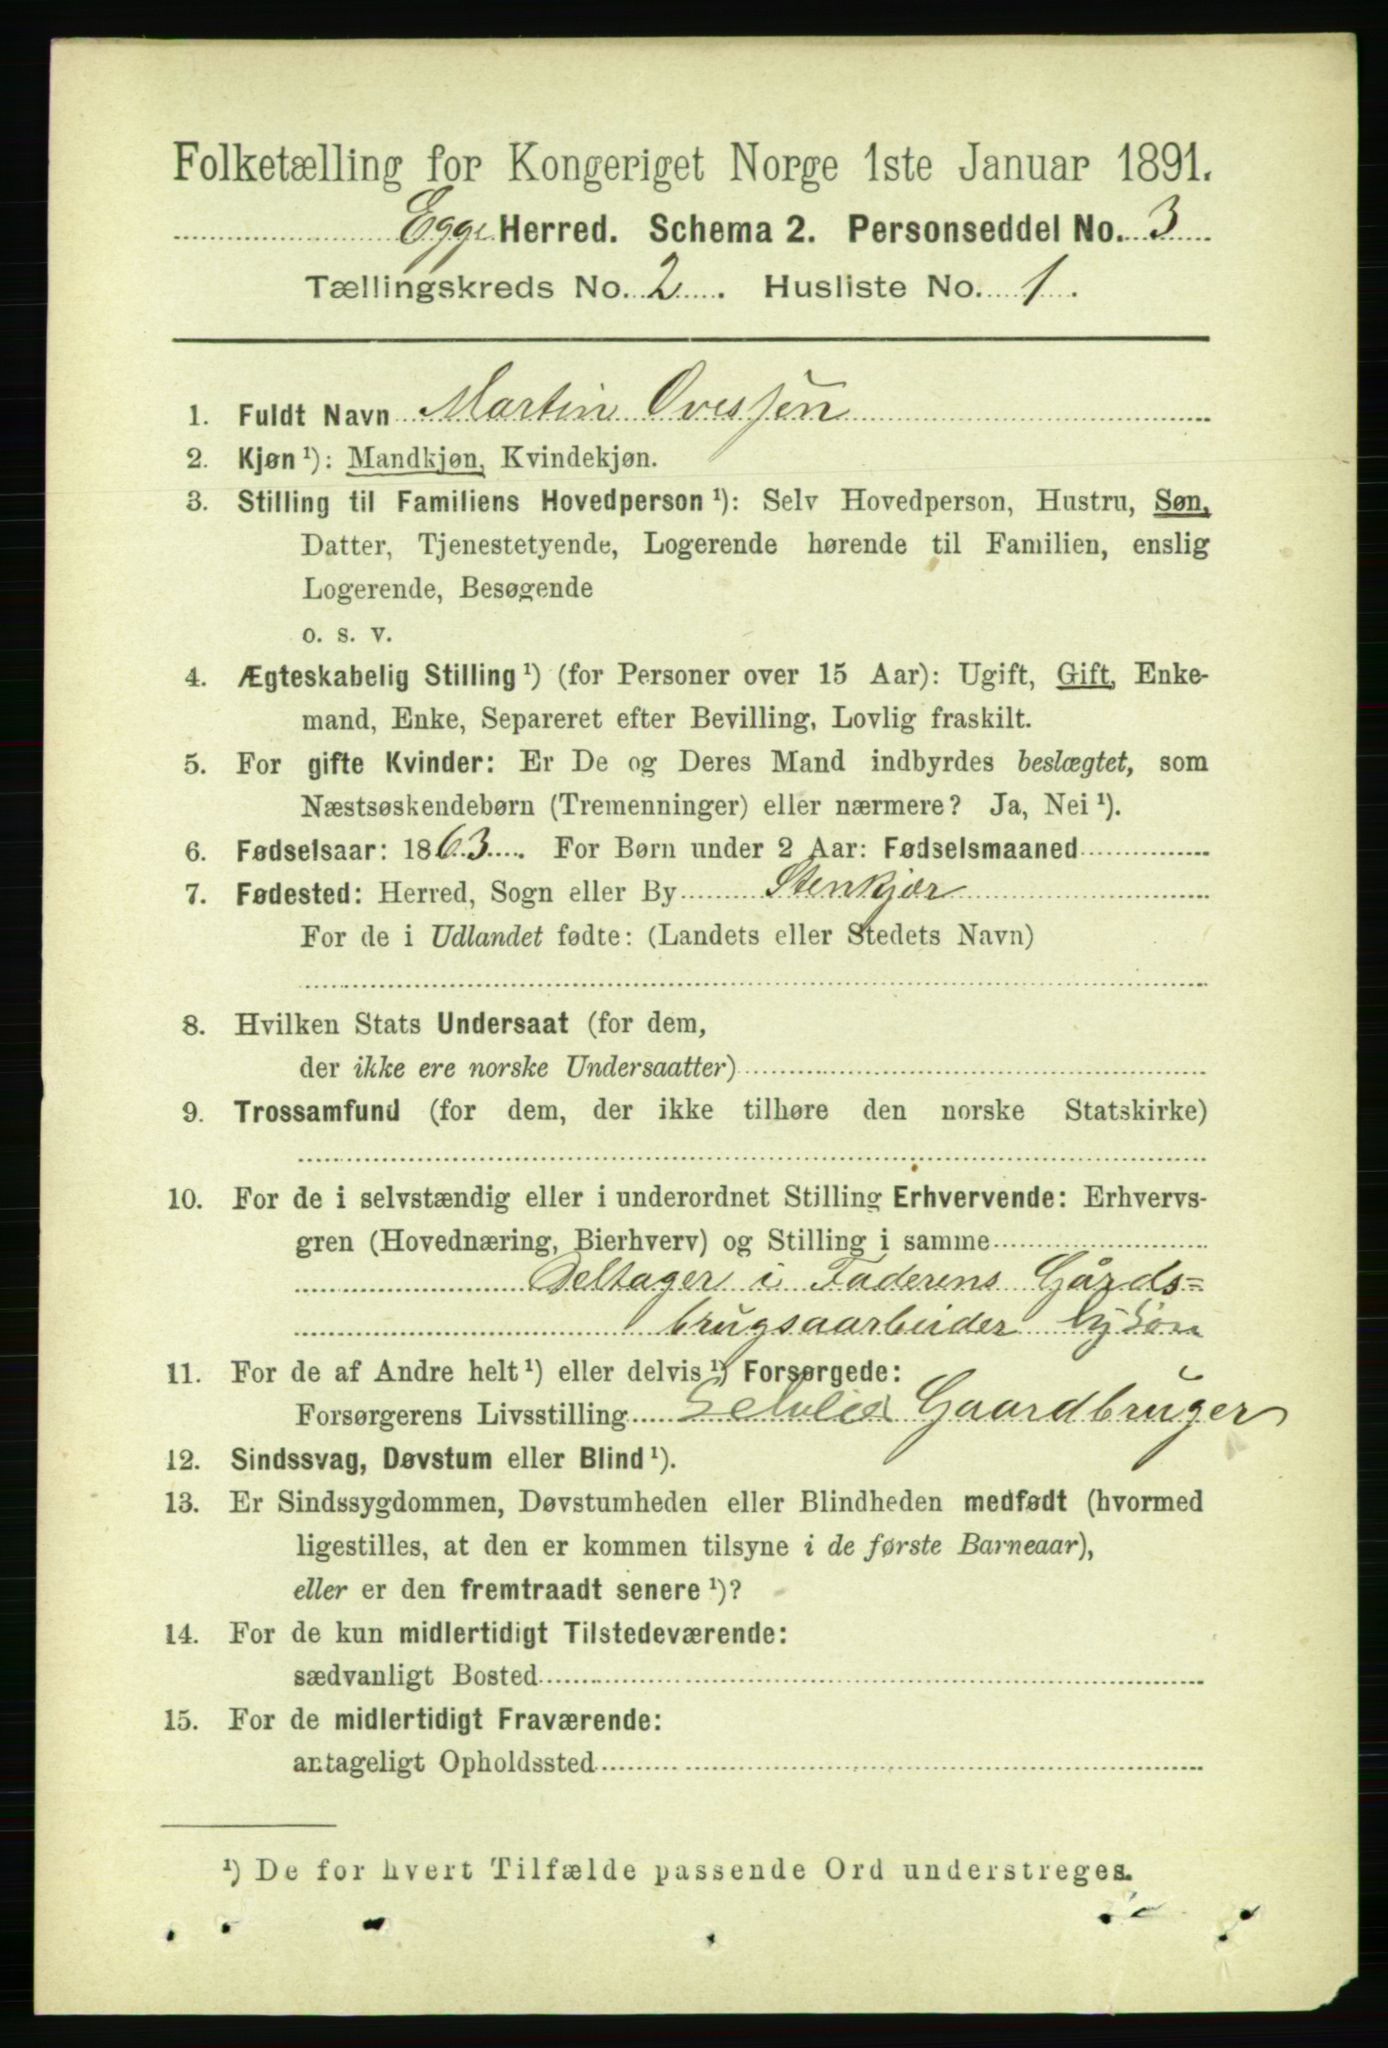 Folketælling for Kongeriget Norge 1ste Januar 1891.
Egge Herred. Schema 2. Personseddel No. 3
Tællingskreds No. 2. Husliste No. 1.
1. Fuldt Navn Martin Ovessen
2. Kjøn ¹): Mandkjøn, Kvindekjøn.
3. Stilling til Familiens Hovedperson ¹): Selv Hovedperson, Hustru, Søn,
Datter, Tjenestetyende, Logerende hørende til Familien, enslig
Logerende, Besøgende
o. s. v.
4. Ægteskabelig Stilling ¹) (for Personer over 15 Aar): Ugift, Gift, Enke-
mand, Enke, Separeret efter Bevilling, Lovlig fraskilt.
5. For gifte Kvinder: Er De og Deres Mand indbyrdes beslægtet, som
Næstsøskendebørn (Tremenninger) eller nærmere? Ja, Nei ¹).
6. Fødselsaar: 1863. For Børn under 2 Aar: Fødselsmaaned
7. Fødested: Herred, Sogn eller By Stenkjær
For de i Udlandet fødte: (Landets eller Stedets Navn)
8. Hvilken Stats Undersaat (for dem,
der ikke ere norske Undersaatter)
9. Trossamfund (for dem, der ikke tilhøre den norske Statskirke)
10. For de i selvstændig eller i underordnet Stilling Erhvervende: Erhvervs-
gren (Hovednæring, Bierhverv) og Stilling i samme
Deltager i Faderens Gårds=
brugsaarbeider
11. For de af Andre helt ¹) eller delvis ¹) Forsørgede:
Forsørgerens Livsstilling Gaardbruger
12. Sindssvag, Døvstum eller Blind ¹).
13. Er Sindssygdommen, Døvstumheden eller Blindheden medfødt (hvormed
ligestilles, at den er kommen tilsyne i de første Barneaar),
eller er den fremtraadt senere ¹)?
14. For de kun midlertidigt Tilstedeværende:
sædvanligt Bosted
15. For de midlertidigt Fraværende:
antageligt Opholdssted
¹) De for hvert Tilfælde passende Ord understreges.